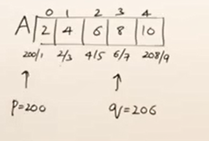 0 1 2 3 4
A 2 4 6 8 10
200/1 2/3 4/5 6/7 208/9
p=200 q=206